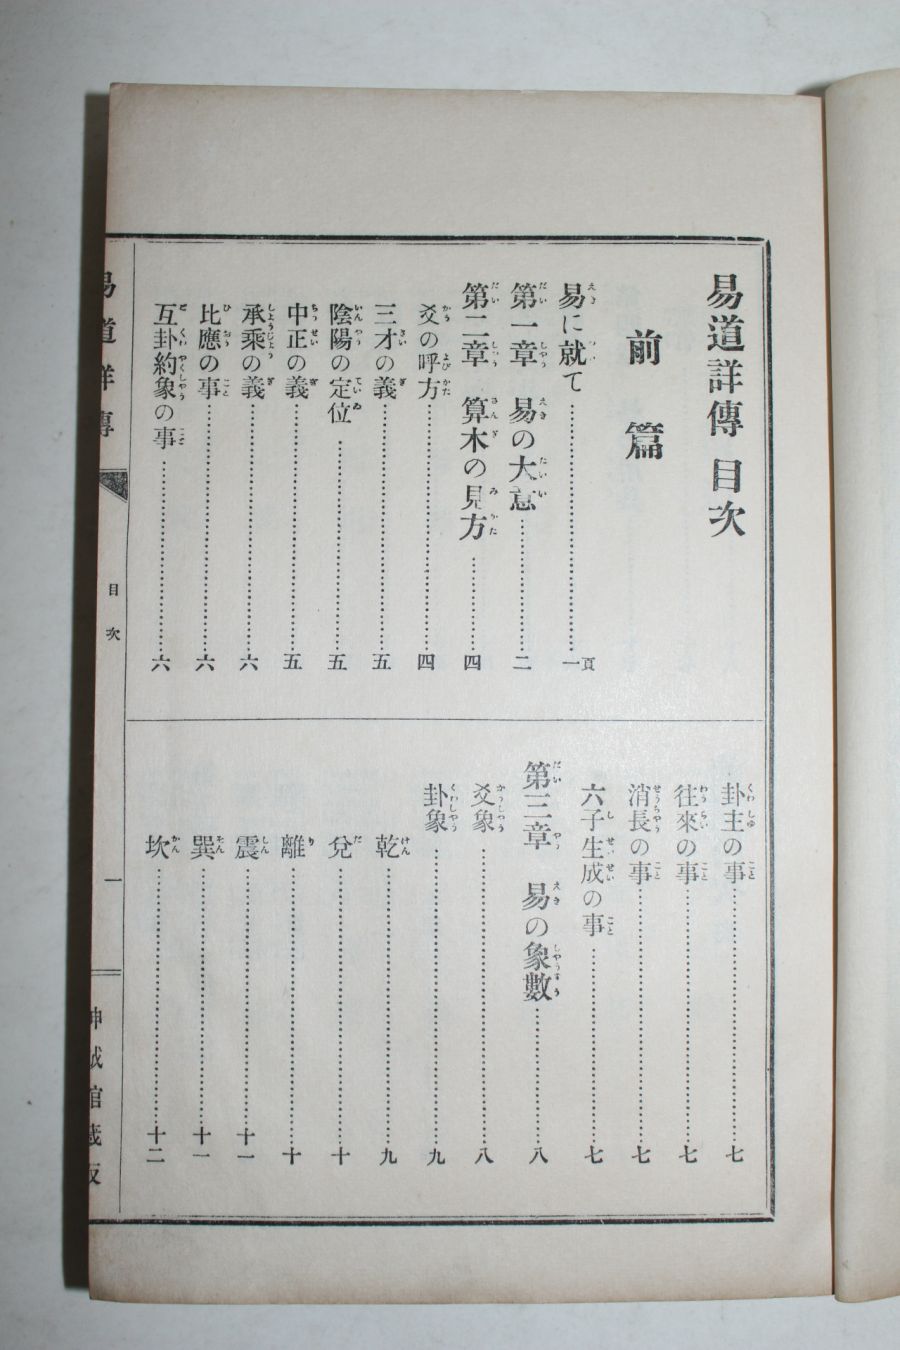 易道詳傳 目次
前篇
易に就て 一頁
第一章 易の大意 二
第二章 算木の見方 四
爻の呼方 四
三才の義 五
陰陽の定位 五
中正の義 五
承乘の義 六
比應の事 六
互卦約象の事 六
卦主の事 七
往來の事 七
消長の事 七
六子生成の事 七
第三章 易の象數 八
爻象 八
卦象 九
乾 九
兌 十
離 十
震 十一
巽 十一
坎 十二
易道詳傳
目次
一
神誠館蔵版